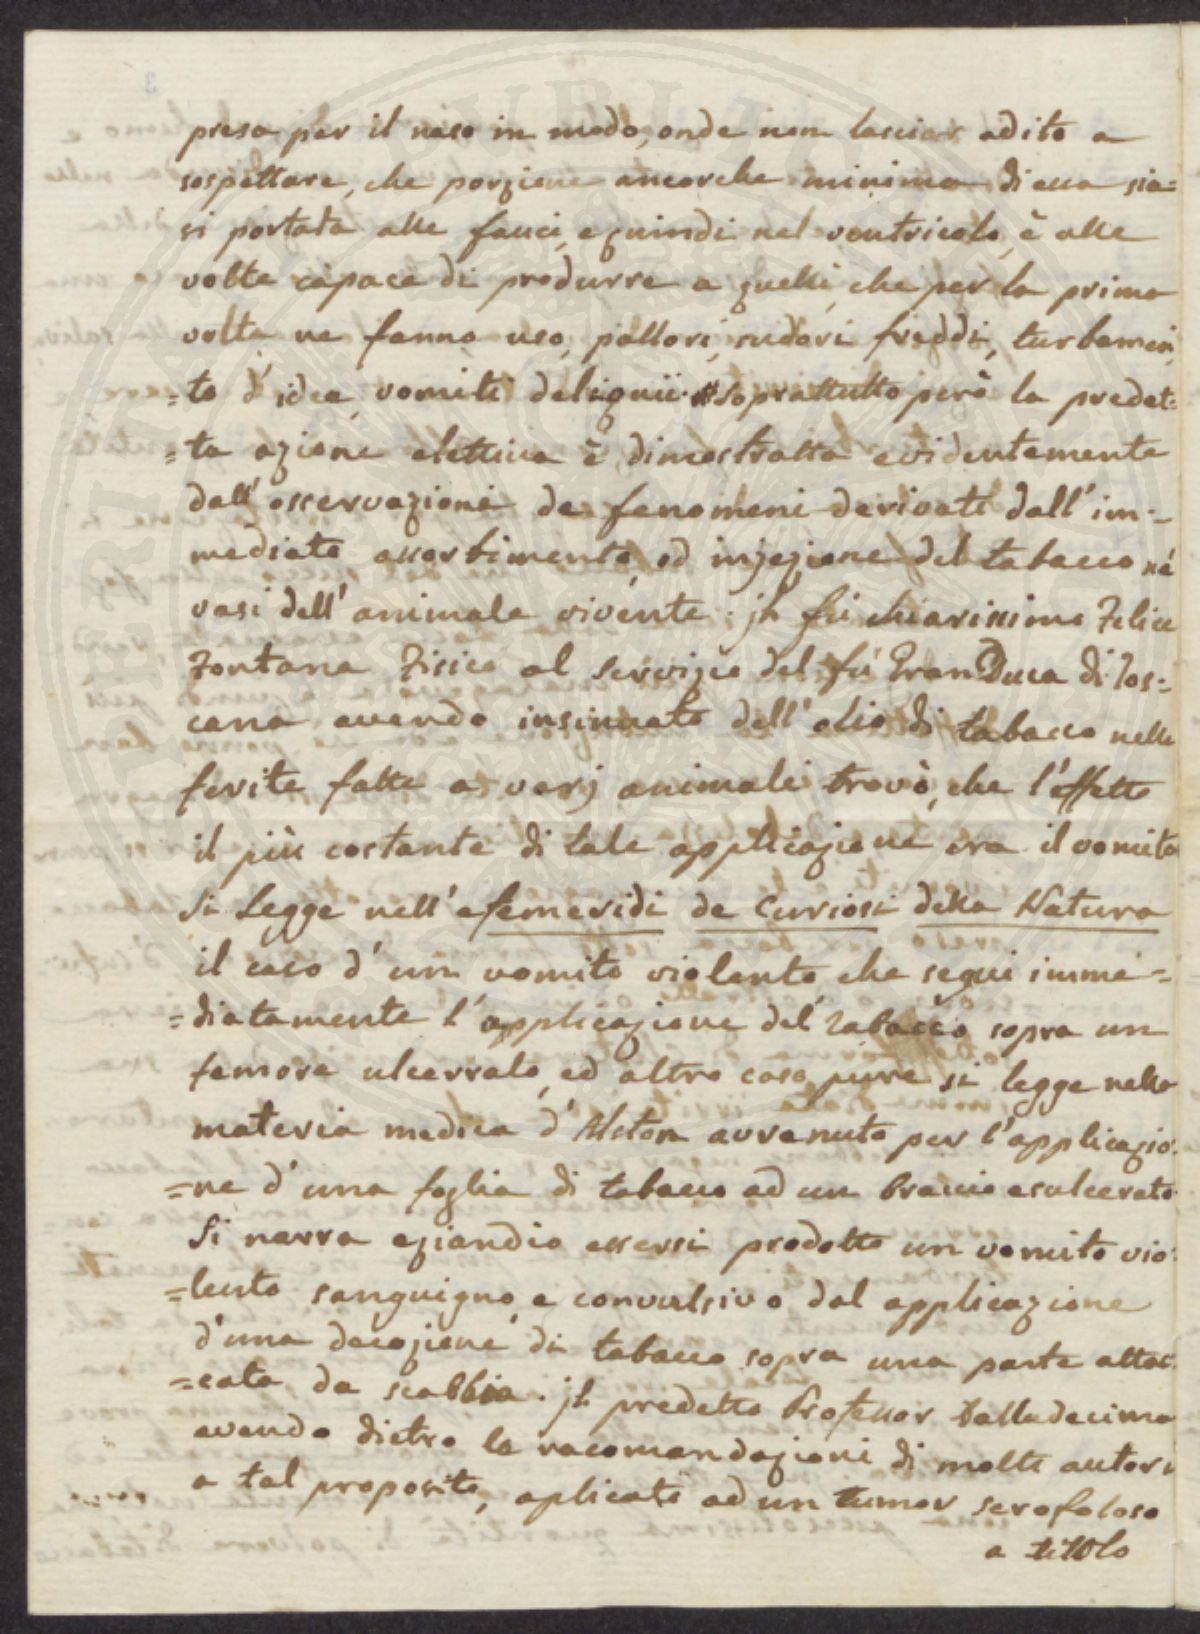 presa per il naso in modo, onde non lasciar adito a
sospettare, che porzione ancorche minima di essa sia=
si portata alle fauci, e quindi nel ventricolo, è alle
volte capace di produrre a quelli, che per la prima
volta ne fanno uso, pallori, sudori freddi, turbamen
=to d'idee, vomiti deliquii. soprattutto però la predet=
=ta azione elettiva è dimostratta evidentemente
dall'osservazione de fenomeni derivati dall'im=
mediato assorbimento, od injezione del tabacco né
vasi dell'animale vivente. jl fù chiarissimo Felice
Fontana Fisico al servizio del fù Gran Duca di Tos=
cana avendo insinuato dell'olio di tabacco nelle
ferite fatte a varj animali trovò, che l'effetto
il più costante di tale applicazione era il vomito
Si Legge nell'efemeridi de Curiosi della Natura
il caso d'un vomito violento, che seguì imme=
=diatamente l'applicazione del Tabacco sopra un
femore ulcerrato, ed altro caso pure si legge nella
materia medica d'Alston avvenuto per l'applicazio=
=ne d'una foglia di tabacco ad un braccio esulcerato
Si narra eziandio essersi prodotto un vomito vio=
=lento sanguigno, e convulsivo dal applicazione
d'una decozione di tabacco sopra una parte attac=
=cata da scabbia. jl predetto Professor Dalladecima
avendo dietro le racomandazioni di molti autori
a tal proposito, aplicato ad un tumor scrofoloso
a tittolo